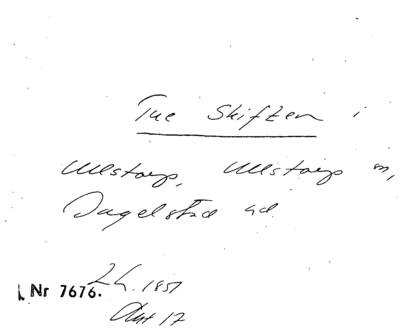 Tue Skiften i
Ullstorp, Ullstorp m,
Dagelstad hd
Nr 7676. 24. 1857
Akt 17